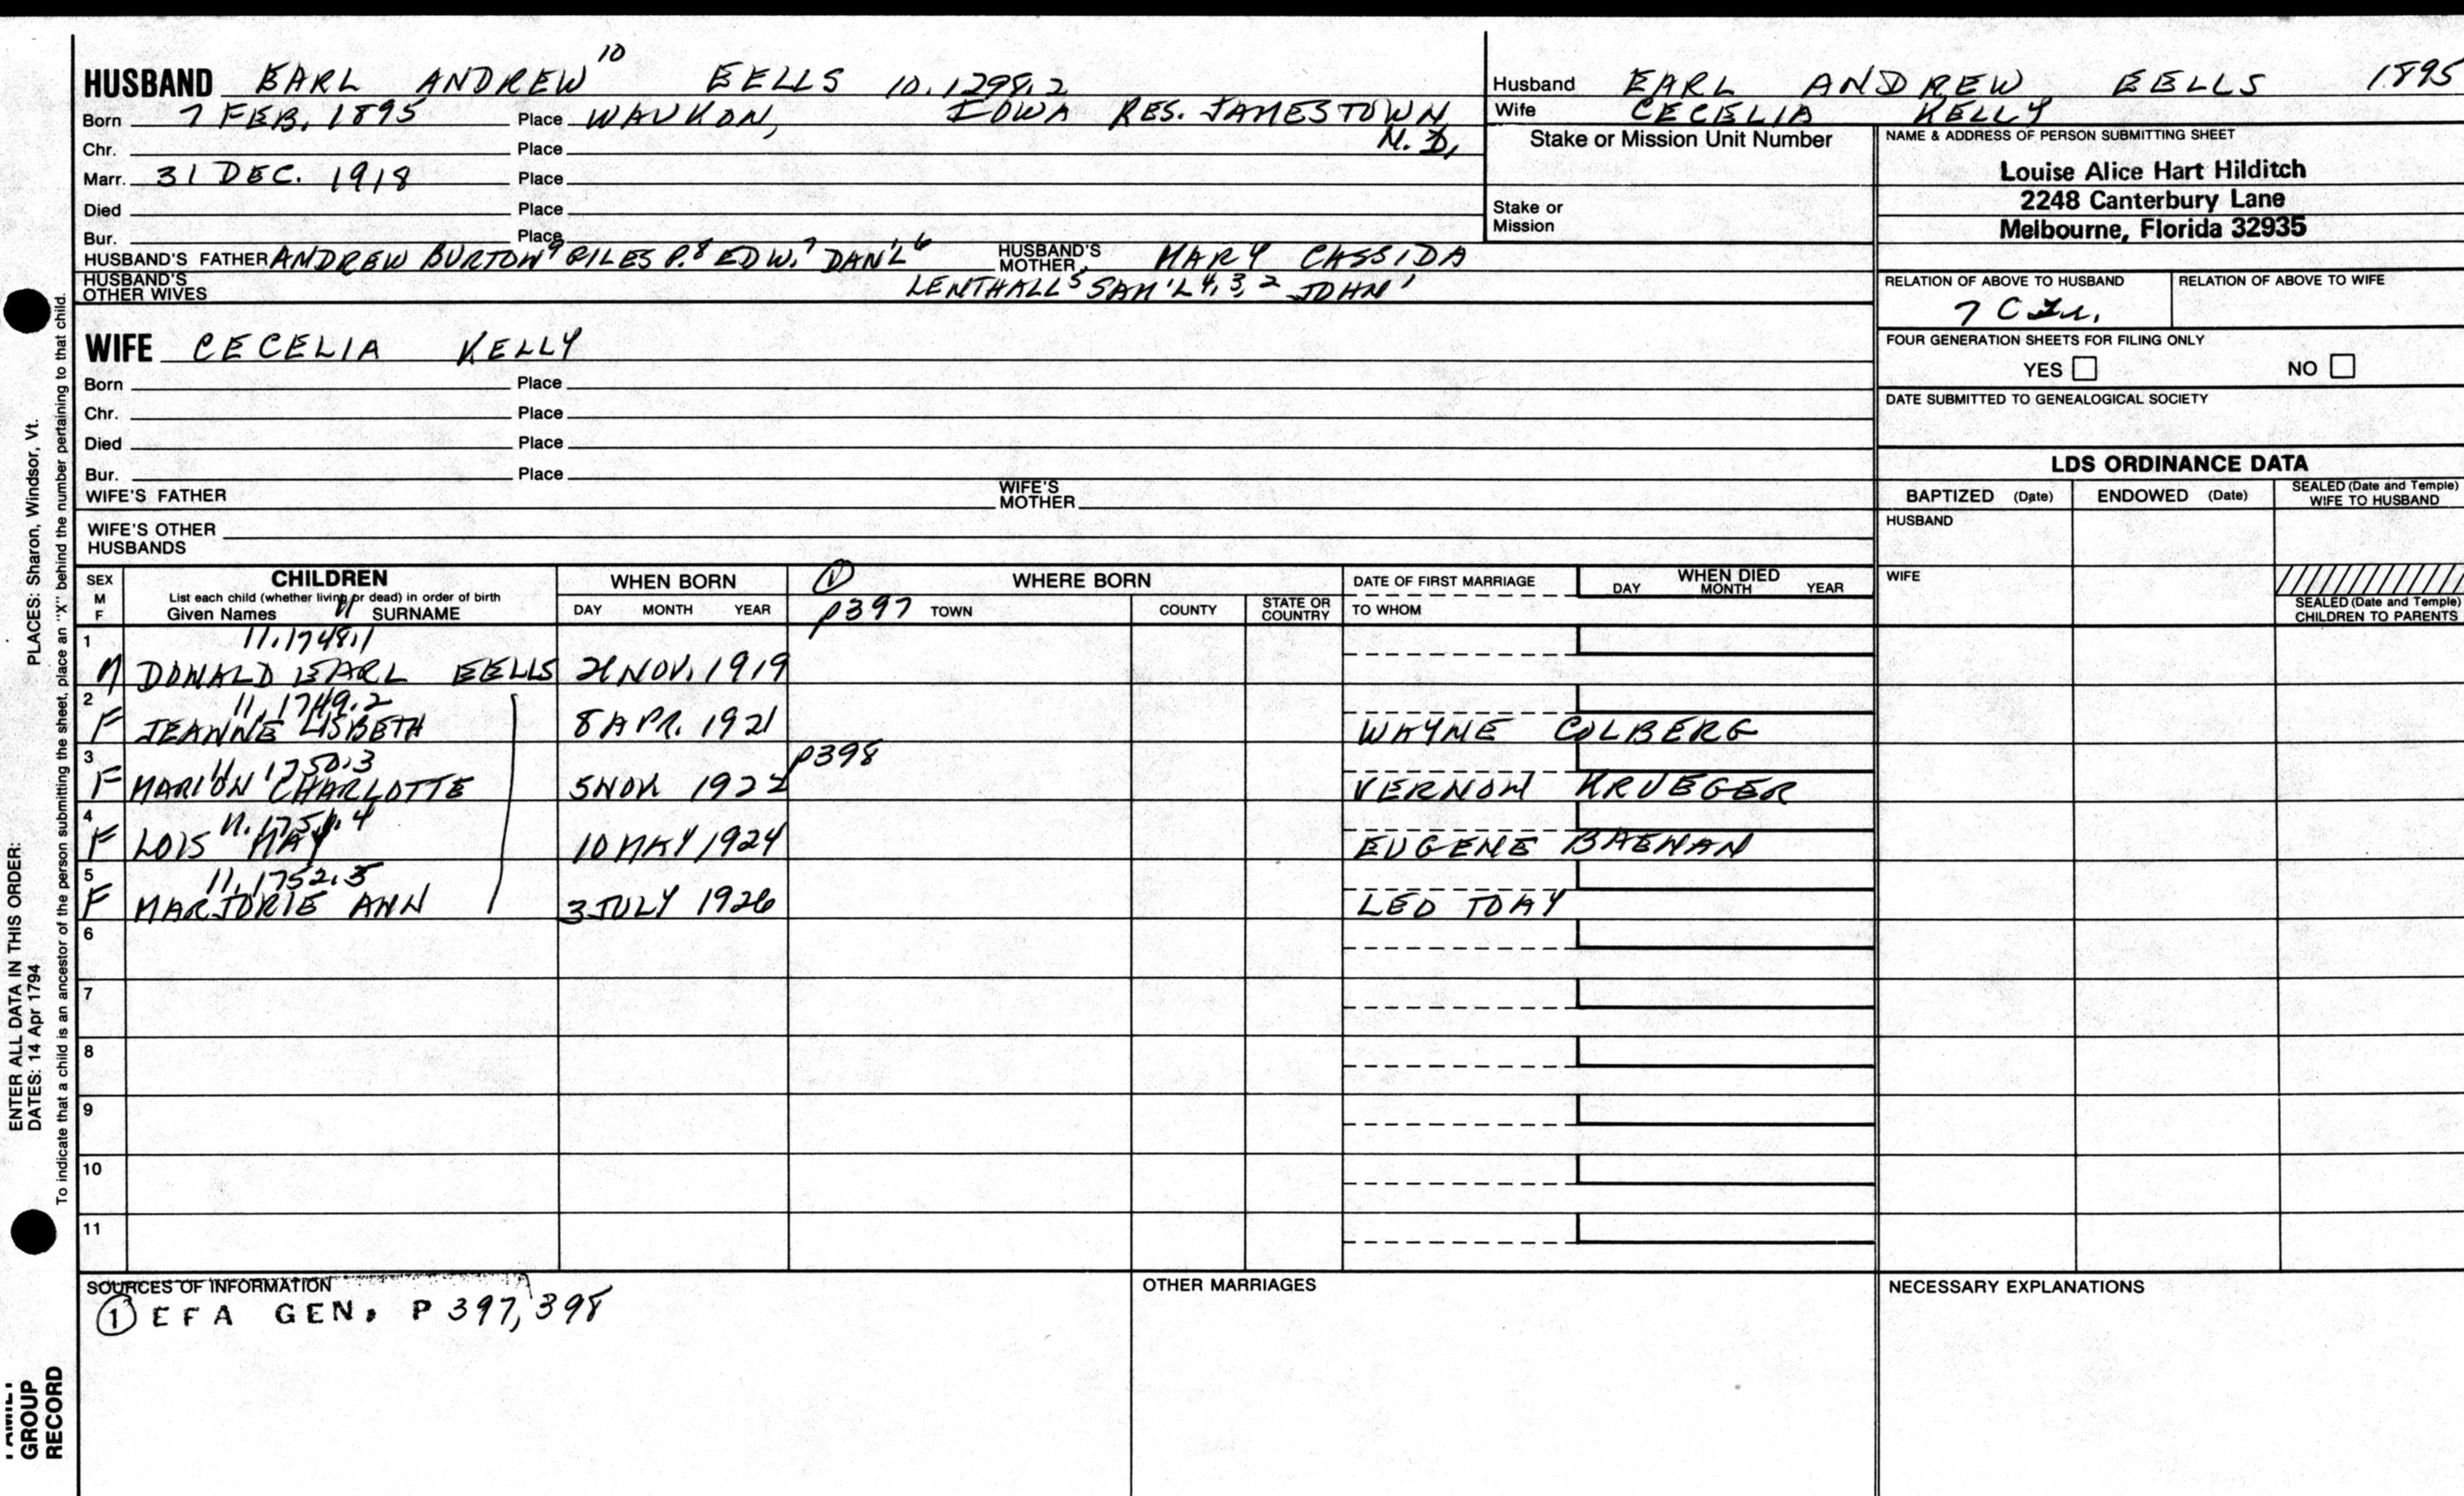 HUSBAND EARL ANDREW 10 EELLS 10.1298.2
Born 7 FEB. 1895 Place WAUKON, IOWA RES. JAMESTOWN N. D.
Chr. Place
Marr. 31 DEC. 1918 Place
Died Place
Bur. Place
HUSBAND'S FATHER ANDREW BURTON 9 GILES P. 8 EDW. 7 DAN'L 6 HUSBAND'S MOTHER MARY CASSIDA
HUSBAND'S OTHER WIVES LENTHALL 5 SAM'L 4, 3, 2 JOHN 1
WIFE CECELIA KELLY
Born Place
Chr. Place
Died Place
Bur. Place
WIFE'S FATHER WIFE'S MOTHER
WIFE'S OTHER HUSBANDS
Husband EARL ANDREW EELLS 1895
Wife CECELIA KELLY
Stake or Mission Unit Number
Stake or Mission
NAME & ADDRESS OF PERSON SUBMITTING SHEET
Louise Alice Hart Hilditch
2248 Canterbury Lane
Melbourne, Florida 32935
RELATION OF ABOVE TO HUSBAND RELATION OF ABOVE TO WIFE
7 C
FOUR GENERATION SHEETS FOR FILING ONLY
YES NO
DATE SUBMITTED TO GENEALOGICAL SOCIETY
LDS ORDINANCE DATA
BAPTIZED (Date) ENDOWED (Date) SEALED (Date and Temple) WIFE TO HUSBAND
HUSBAND
WIFE
SEALED (Date and Temple) CHILDREN TO PARENTS
SEX M F
CHILDREN
List each child (whether living or dead) in order of birth
Given Names 11 SURNAME
WHEN BORN
DAY MONTH YEAR
① WHERE BORN
P397 TOWN COUNTY STATE OR COUNTRY
DATE OF FIRST MARRIAGE
TO WHOM
WHEN DIED
DAY MONTH YEAR
1 11.1748.1
M DONALD EARL EELLS 2 NOV. 1919
2 11.1749.2
F JEANNE LISBETH 8 APR. 1921 WAYNE COLBERG
3 11.1750.3 P398
F MARION CHARLOTTE 5 NOV 1922 VERNON KRUEGER
4 11.1751.4
F LOIS MAY 10 MAY 1924 EUGENE BAENAN
5 11.1752.5
F MARJORIE ANN 3 JULY 1926 LEO TOAY
6
7
8
9
10
11
SOURCES OF INFORMATION
① EFA GEN. P 397, 398
OTHER MARRIAGES
NECESSARY EXPLANATIONS
PLACES: Sharon, Windsor, Vt.
ENTER ALL DATA IN THIS ORDER:
DATES: 14 Apr 1794
To indicate that a child is an ancestor of the person submitting the sheet, place an "X" behind the number pertaining to that child.
FAMILY
GROUP
RECORD